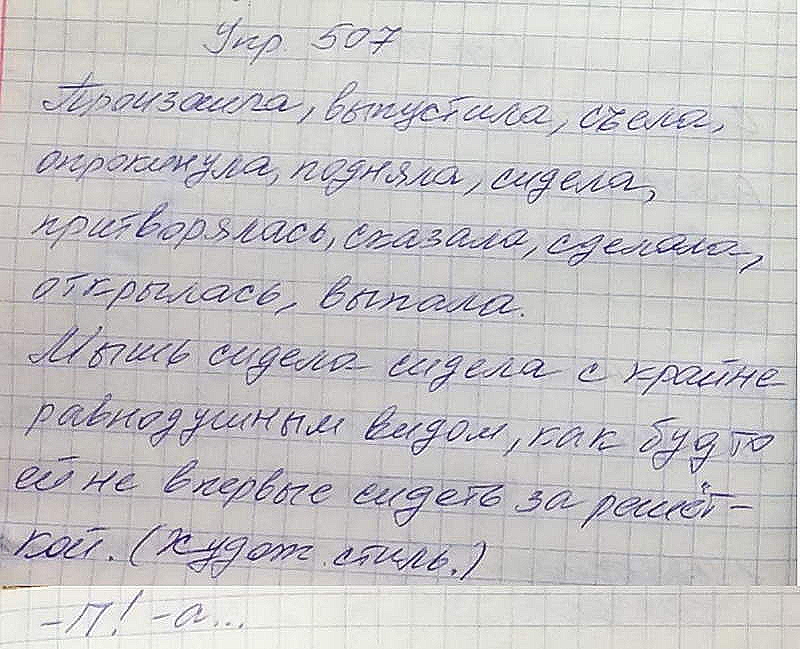 Упр. 507
Произошла, выпустила, съела,
опрокинула, подняла, сидела,
притворялась, сказала, сделала,
открылась, выпала.
Мышь сидела сидела с крайне
равнодушным видом, как будто
ей не впервые сидеть за решёт-
кой. (Худож. стиль.)
-П! -а...